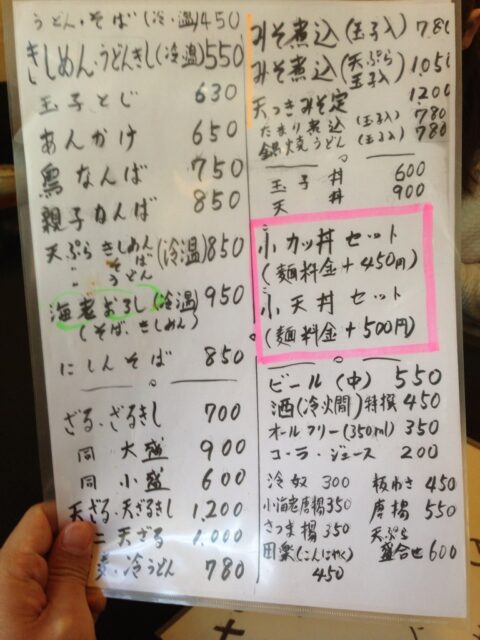 うどん・そば(冷・温)450
きしめん・うどんきし(冷温)550
玉子とじ 630
あんかけ 650
鳥なんば 750
親子なんば 850
天ぷら きしめん そば うどん (冷温)850
海老おろし(冷温)950
(そば、きしめん)
にしんそば 850
ざる・ざるきし 700
同 大盛 900
同 小盛 600
天ざる・天ざるきし 1,200
天ざる 1,000
冷うどん 780
みそ煮込(玉子入)780
みそ煮込(天ぷら 玉子入)1,050
天つきみそ定 1,200
たまり煮込(玉子入)780
鍋焼うどん(玉子入)780
玉子丼 600
天丼 900
小カツ丼セット
(麺料金+450円)
小天丼セット
(麺料金+500円)
ビール(中)550
酒(冷・燗)特撰 450
オールフリー(350ml)350
コーラ・ジュース 200
冷奴 300
小海老唐揚 350
さつま揚 350
田楽(こんにゃく)
450
板わさ 450
唐揚 550
天ぷら
盛合せ 600